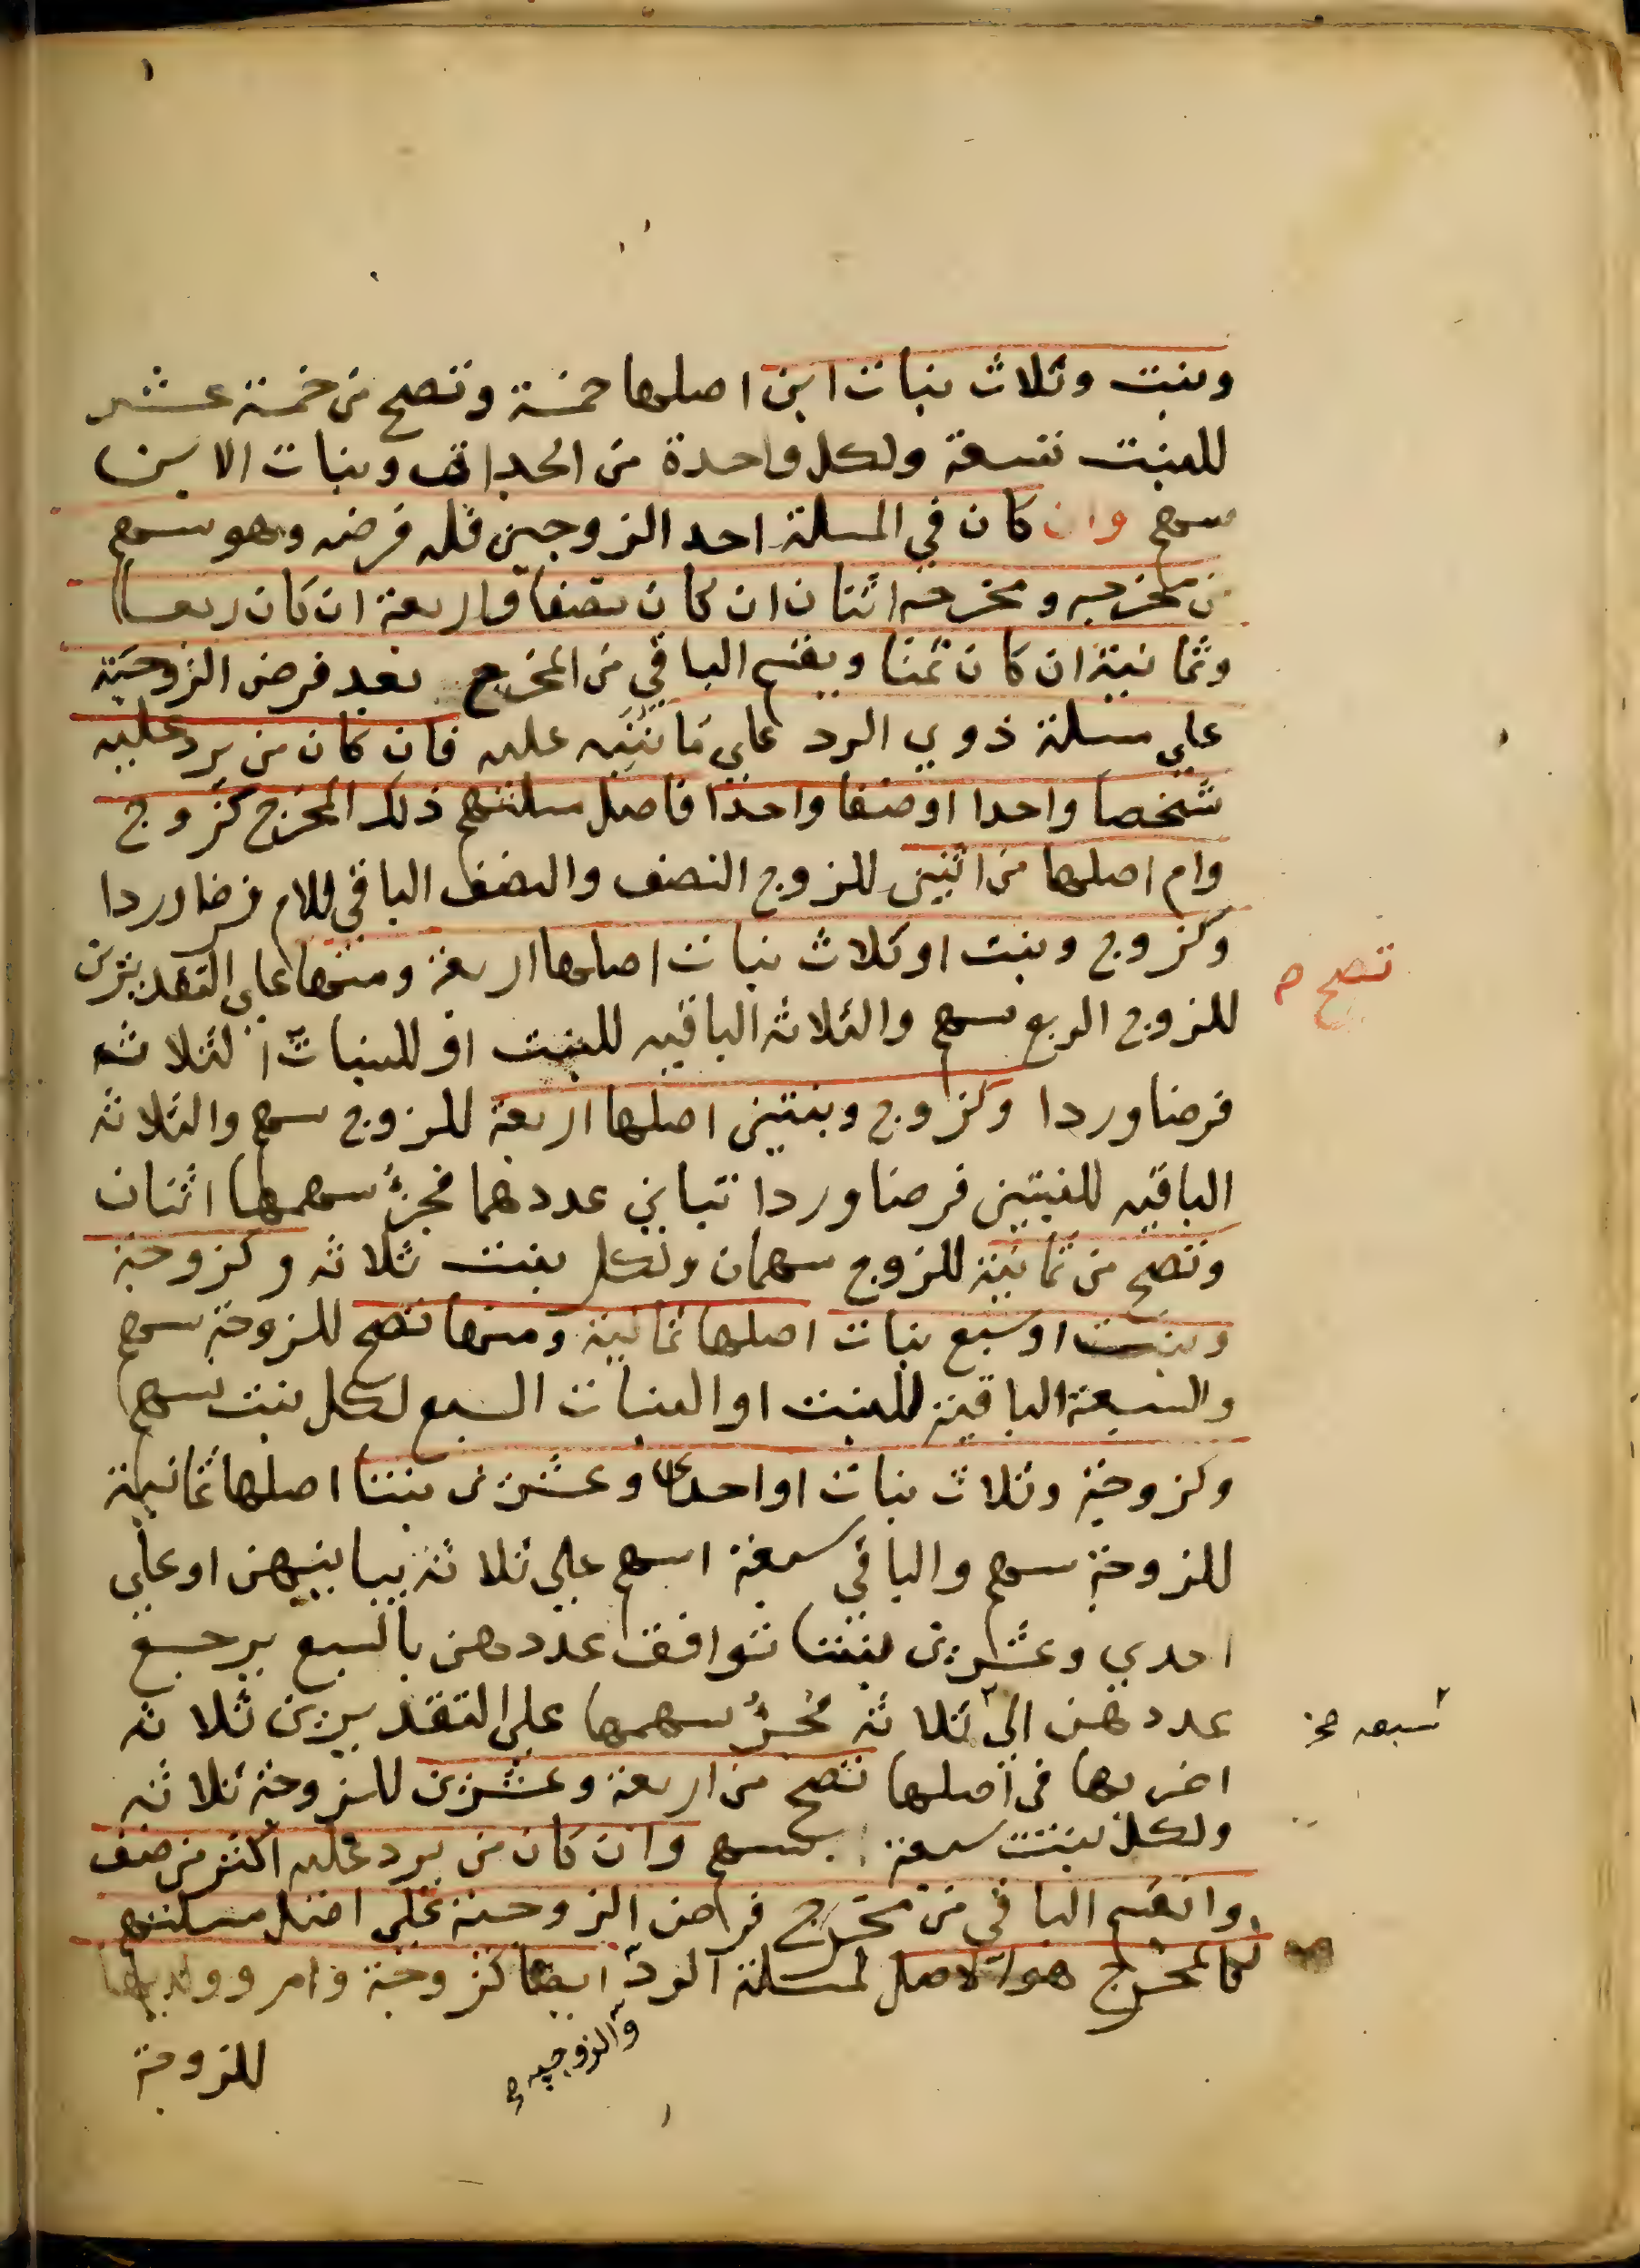 وبنت وثلاث بنات ابن اصلها خمسة وتصح من خمسة عشر
للبنت تسعة ولكل واحدة من الجدات وبنات الابن
سهم وان كان في المسلة احد الزوجين فله فرضه وهو سهم
من مخرجه ومخرجه اثنان ان كان نصفا واربعة ان كان ربعا
وثمانية ان كان ثمنا ويقسم الباقي من المخرج بعد فرض الزوجية
علي مسلة ذوي الرد علي ما ننبه عليه فان كان من يرد عليه
شخصا واحدا اوصنفا واحدا فاصل مسلتهم ذلك المخرج كزوج
وام اصلها من اثنين للزوج النصف والنصف الباقي للام فرضا وردا
وكزوج وبنت اوثلاث بنات اصلها اربعة ومنها علي التقديرين
تصح م
للزوج الربع سهم والثلاثه الباقيه للبنت او للبنات الثلاثه
فرضا وردا وكزوج وبنتين اصلها اربعة للزوج سهم والثلاثه
الباقيه للبنتين فرضا وردا تباين عددهما فجزؤ سهمها اثنان
وتصح من ثمانية للزوج سهمان ولكل بنت ثلاثه وكزوجة
وبنت اوسبع بنات اصلها ثمانية ومنها تصح للزوجة سهم
والسبعة الباقية للبنت او البنات السبع لكل بنت سهم
وكزوجة وثلاث بنات او احدي وعشرين بنتا اصلها ثمانية
للزوجة سهم والباقي سبعة اسهم علي ثلاثة يباينهن اوعلي
احدي وعشرين بنتا توافق عددهن بالسبع يرجع
عددهن الي ثلاثه فجزؤ سهمها علي التقديرين ثلاثه
اضربها في اصلها تصح من اربعة وعشرين للزوجة ثلاثه
ولكل بنت سبعة سهم وان كان من يرد عليه اكثر من صنف
وانقسم الباقي من مخرج فرض الزوجية علي اصل مسلتهم
فالمخرج هو الاصل لمسلة الرد ايضا كزوجة وام وولديها
والزوجيه م
للزوجة